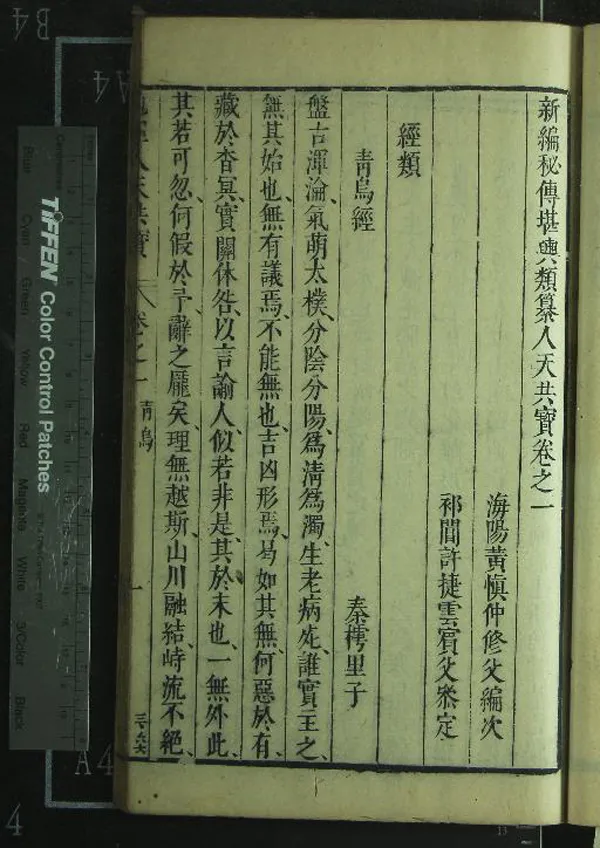 新編秘傳堪輿類纂人天共寳卷之一
海陽黃慎仲修父編次
祁閶許捷雲賔父叅定
經類
青烏經
秦樗里子
盤古渾淪、氣萌太樸、分陰分陽、爲清爲濁、生老病死、誰實主之、
無其始也、無有議焉、不能無也、吉凶形焉、曷如其無、何惡於有、
藏於杳冥、實關休咎、以言諭人、似若非是、其於末也、一無外此、
其若可忽、何假於予、辭之厖矣、理無越斯、山川融結、峙流不絶、
人天共寳
卷之一
青烏
一
TIFFEN Color Control Patches
Blue
Cyan
Green
Yellow
Red
Magenta
White
3/Color
Black
B4
A4
A4
4
13